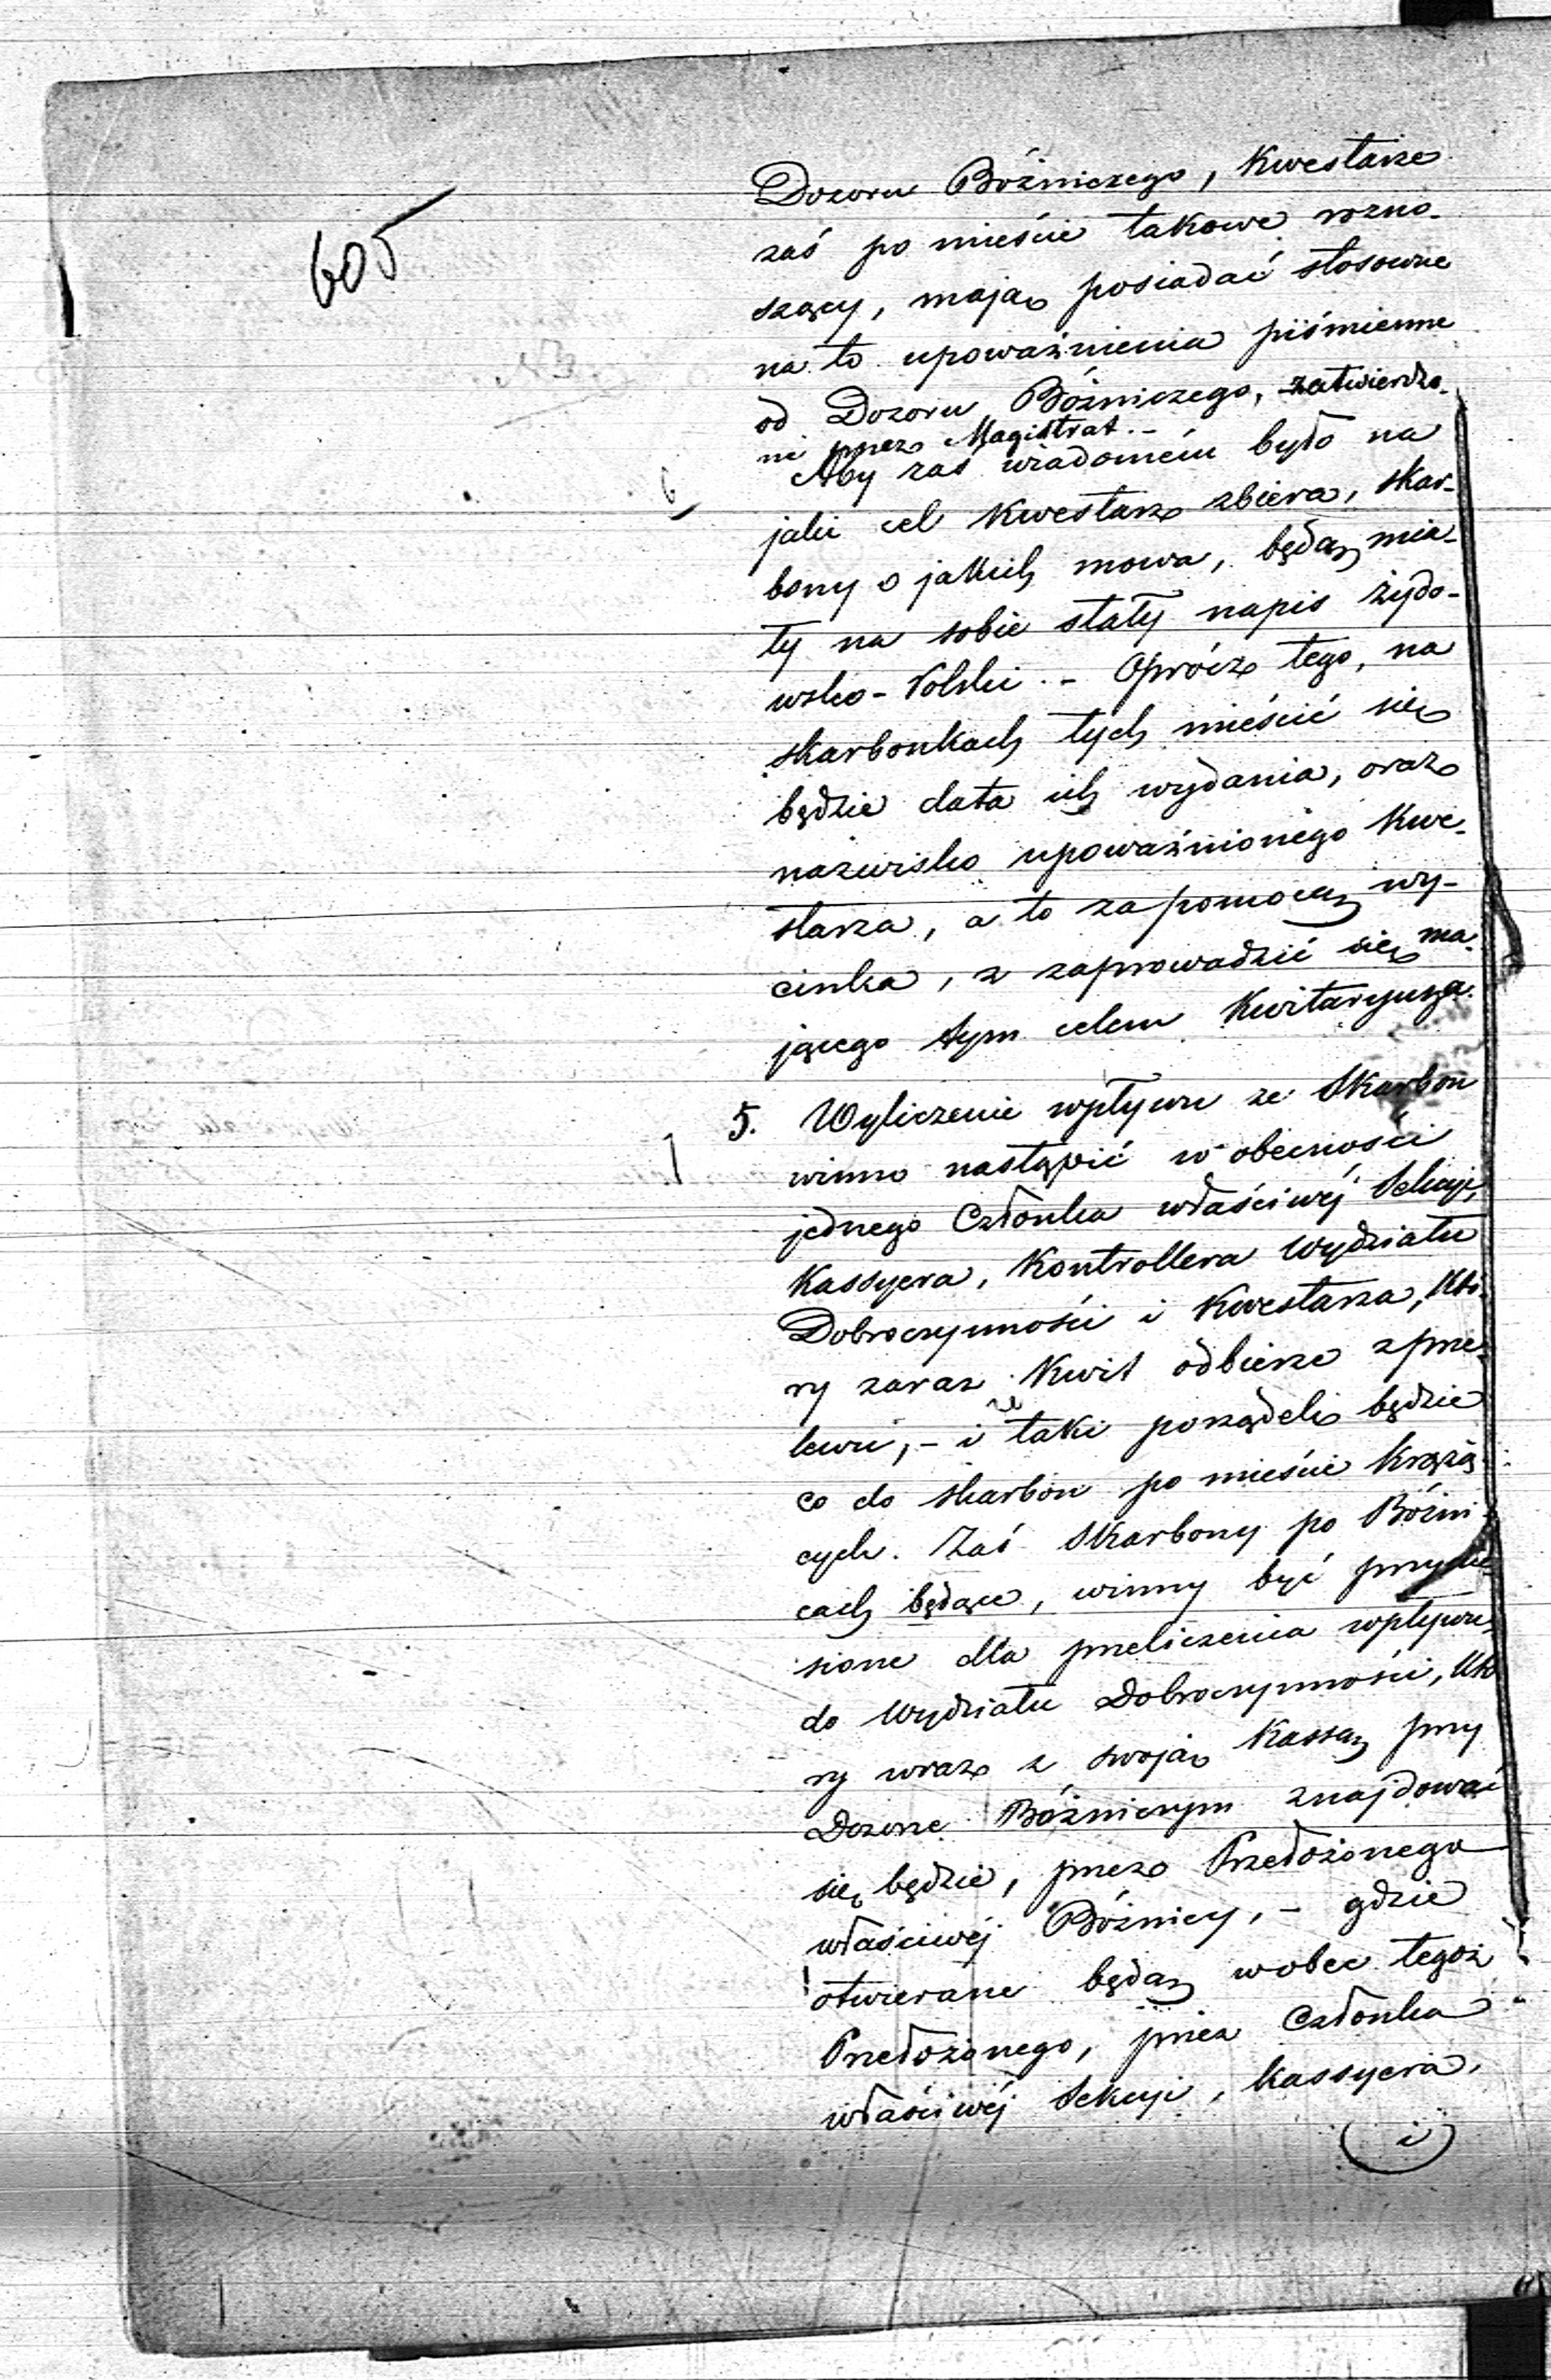 605
Dozoru Bóźniczego, Kwestarze
zaś po mieście takowe rozno-
szący, mają posiadać stosowne
na to upoważnienia piśmienne
od Dozoru Bóźniczego, zatwierdzo-
ne przez Magistrat. -
6
Aby zaś wiadomém było na
jaki cel Kwestarz zbiera, skar-
bony o jakich mowa, będą mia-
ły na sobie stały napis żydo-
wsko-Polski. - Oprócz tego, na
skarbonkach tych mieścić się
będzie data ich wydania, oraz
nazwisko upoważnionego Kwe-
starza, a to za pomocą wy-
cinka, z zaprowadzić się ma-
jącego tym celem Kwitaryusza.
5. Wyliczenie wpływu ze Skarbon
winno nastąpić w obecności
jednego Członka właściwéj Sekcyi,
Kassyera, Kontrollera Wydziału
Dobroczynności i Kwestarza, któ-
ry zaraz Kwit odbierze z prze-
lewu, - i taki porządek będzie
co do skarbon po mieście krążą-
cych. Zaś Skarbony po Bóźni-
cach będące, winny być przynie-
sione dla przeliczenia wpływu,
do Wydziału Dobroczynności, któ
ry wraz z swoją Kassą przy
Dozorze Bóźniczym znajdować
się będzie, przez Przełożonego
właściwéj Bóźnicy, - gdzie
otwierane będą wobec tegoż
Przełożonego, przez Członka
właściwéj Sekcyi, Kassyera,
i